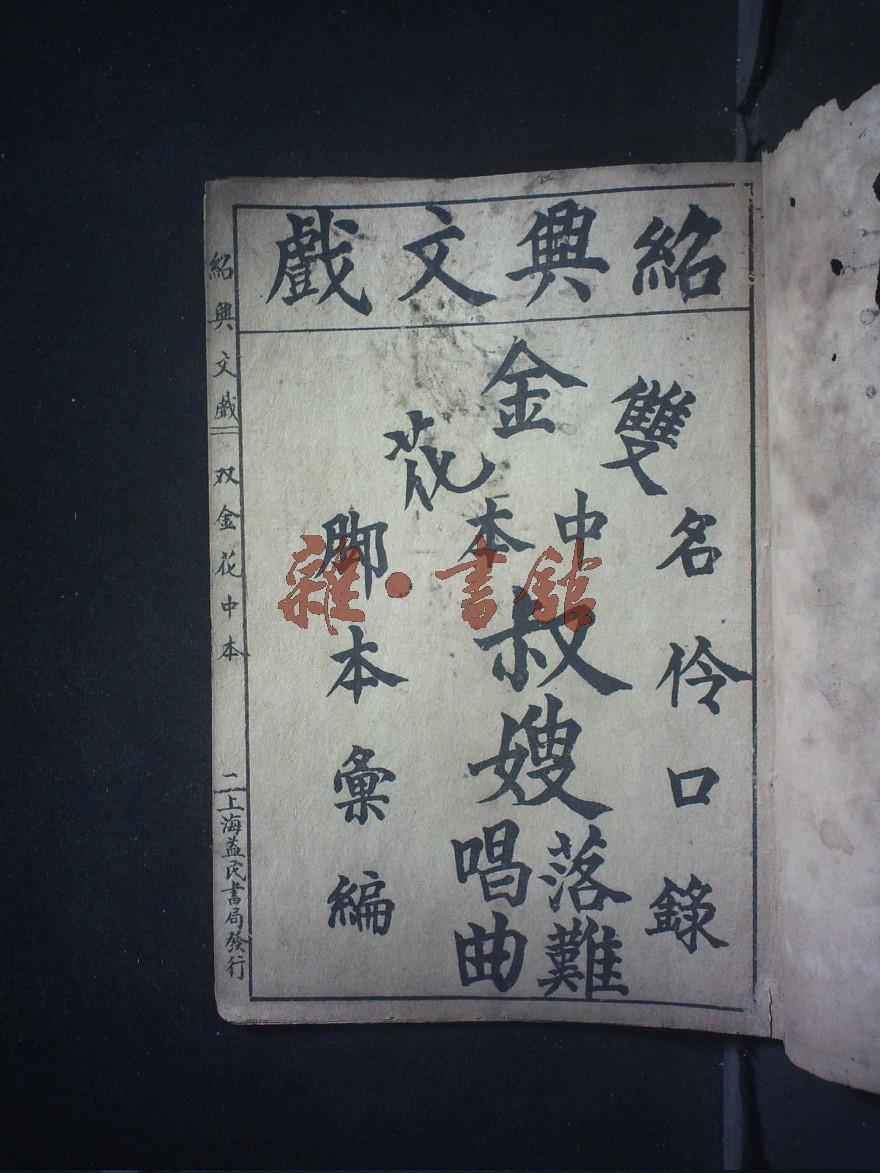 紹興文戲
雙金花
中本
名伶口錄
叔嫂落難唱曲
脚本彙編
紹興文戲
双金花中本
二
上海益民書局發行
雜·書館